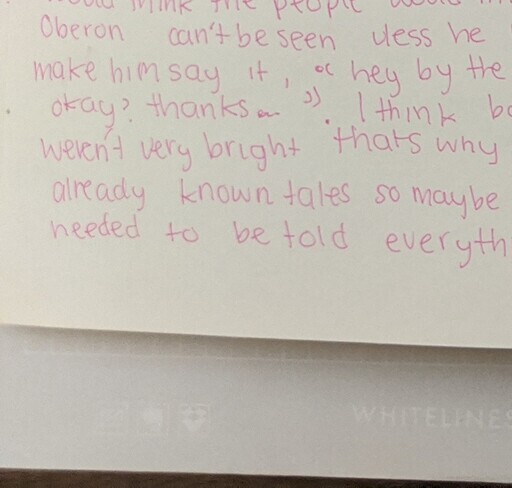 would think the people would
Oberon can't be seen uless he
make him say it, " hey by the
okay? thanks ". I think
weren't very bright thats why
already known tales so maybe
needed to be told everyth
WHITELINES